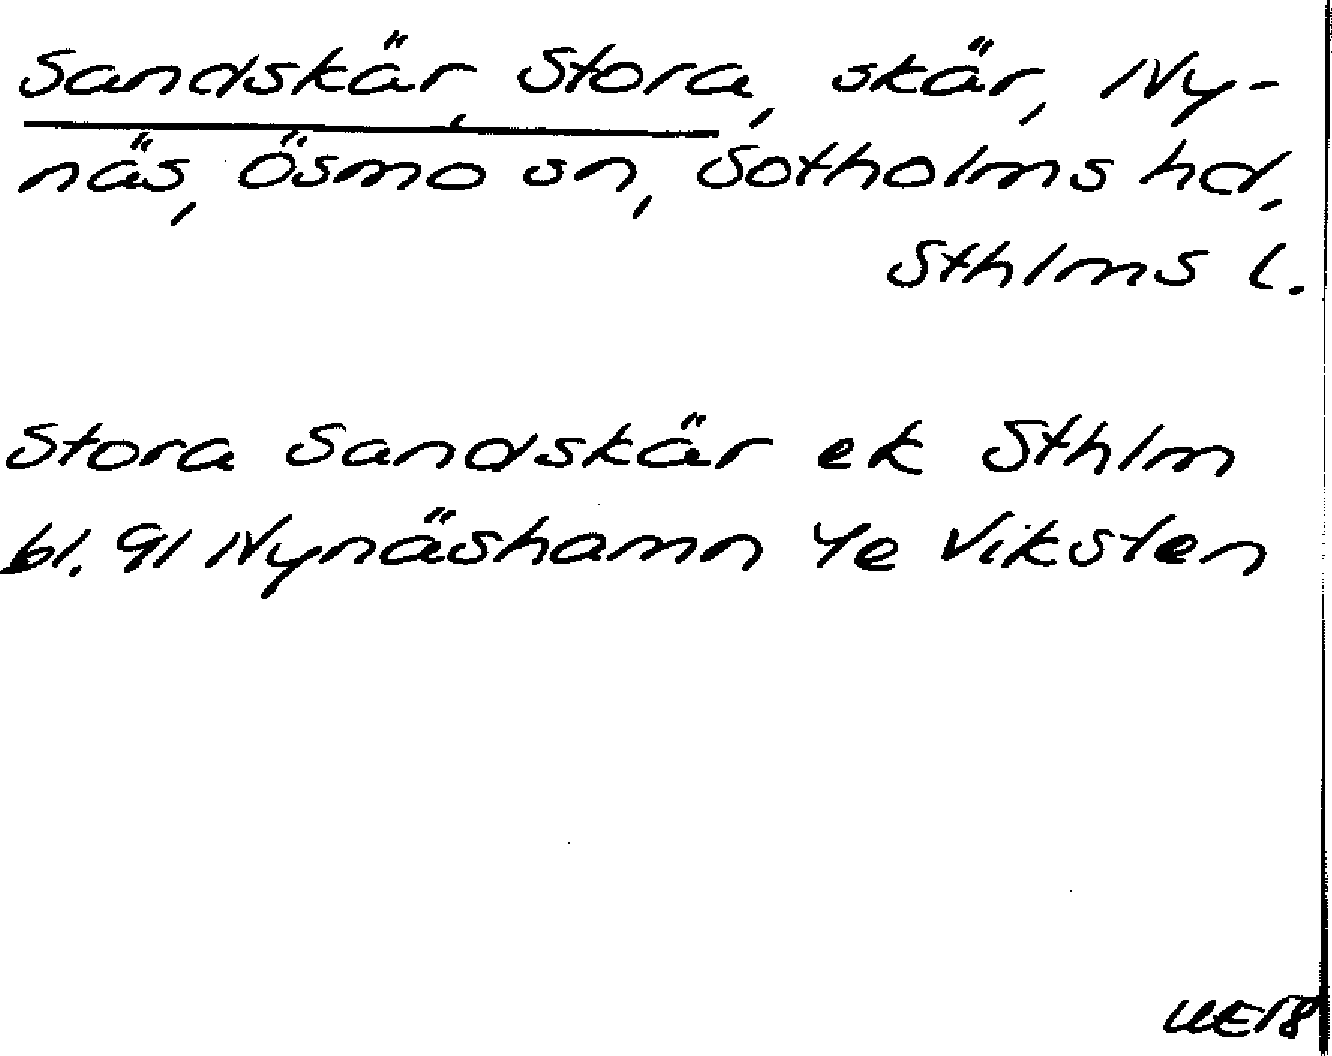 Sandskär, Stora, skär, Ny-
näs, Ösmo sn, Sotholms hd,
Sthlms l.
Stora Sandskär ek Sthlm
bl. 91 Nynäshamn 4e Viksten